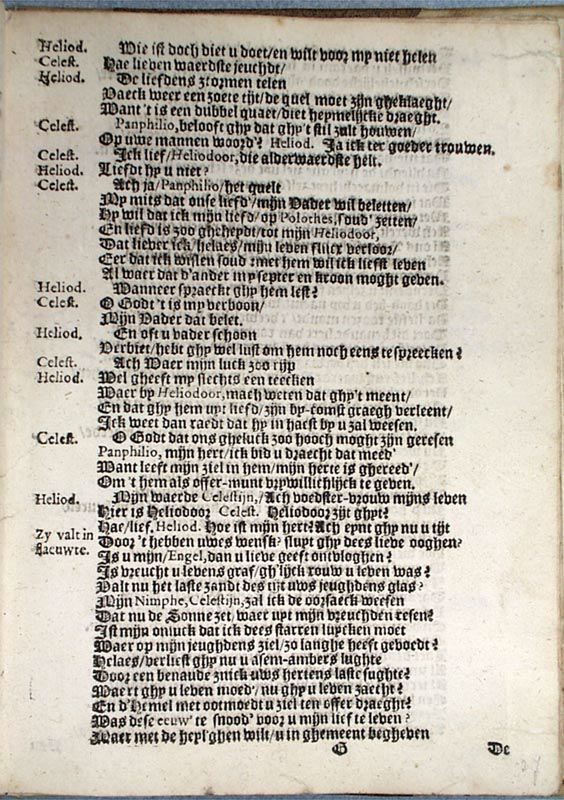 Heliod. Wie ist doch diet u doet/en wilt voor my niet helen
Celest. Hae lieven waerdste jeuchdt/
Heliod. De liefdens stormen telen
Vaeck weer een zoete tijt/de quel moet zijn gheklaeght/
Want 't is een dubbel quaet/diet heymelijcke draeght.
Celest. Panphilio, belooft ghy dat ghy't stil zult houwen/
Op uwe mannen woord? Heliod. Ja ick ter goeder trouwen.
Celest. Ick lief/Heliodoor, die alderwaerdste helt.
Heliod. Liefdt hy u niet?
Celest. Ach ja/Panphilio/het quelt
My mits dat onse liefd'/mijn Vader wil beletten/
Hy wil dat ick mijn liefd/op Poloches, soud' zetten/
En liefd is zoo ghehepdt/tot mijn Heliodoor,
Dat liever ick/helaes/mijn leven flucx verloor/
Eer dat ick wislen soud : met hem wil ick liefst leven
Al waer dat d'ander my septer en kroon moght geven.
Heliod. Wanneer spraeckt ghy hem lest?
Celest. O Godt 't is my verboon/
Mijn Vader dat belet.
Heliod. En oft u vader schoon
Verbiet/hebt ghy wel lust om hem noch eens te spreecken?
Celest. Ach Waer mijn luck zoo rijp
Heliod. Wel gheeft my slechts een teecken
Waer by Heliodoor, mach weten dat ghy't meent/
En dat ghy hem uyt liefd/zijn by-comst graegh verleent/
Ick weet dan raedt dat hy in haest by u zal weesen.
Celest. O Godt dat ons gheluck zoo hooch moght zijn geresen
Panphilio, mijn hert/ick bid u draecht dat meed'
Want leeft mijn ziel in hem/mijn herte is ghereed'/
Om 't hem als offer-munt vrywillichlijck te geven.
Heliod. Mijn waerde Celestijn,/Ach voedster-vrouw mijns leven
Hier is Heliodoor Celest. Heliodoor zijt ghyt?
Zy valt in flaeuwte. Hae/lief. Heliod. Hoe ist mijn hert? Ach eynt ghy nu u tijt
Door 't hebben uwes wensk? sluyt ghy dees lieve ooghen?
Is u mijn/Engel, dan u lieve geest ontvloghen?
Is vreucht u levens graf/gh'lijck rouw u leven was?
Valt nu het laste zandt des tijt uws jeughdens glas?
Mijn Nimphe, Celestijn, zal ick de oorsaeck weesen
Dat nu de Sonne zet/waer uyt mijn vreuchden resen?
Ist mijn onluck dat ick dees starren luycken moet
Waer op mijn jeughdens ziel/zo langhe heeft gevoedt?
Helaes/verliest ghy nu u asem-ambers lughte
Door een benaude znick uws hertens laste sughte?
Waert ghy u leven moed'/nu ghy u leven zaecht?
En d'Hemel met ootmoedt u ziel ten offer draeght?
Was dese eeuw' te snood' voor u mijn lief te leven?
Waer met de heyl'ghen wilt/u in ghemeent begheven
G De